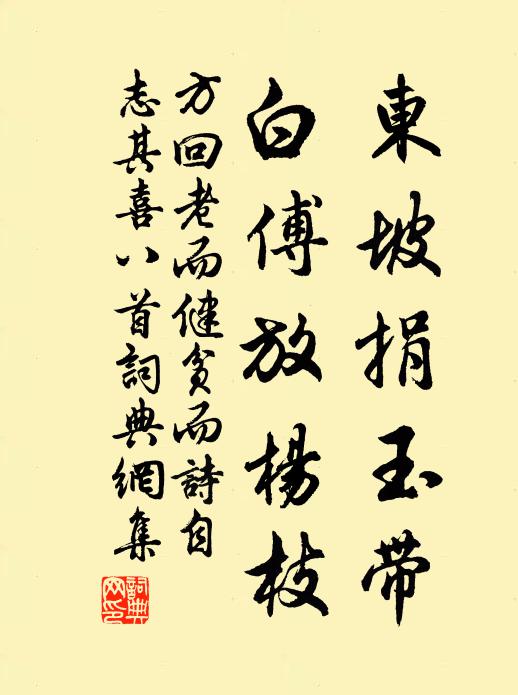 東坡捐玉帶
白傅放楊枝
方回老而健貧而詩自
志其喜八首詞典網集
詞典
网印